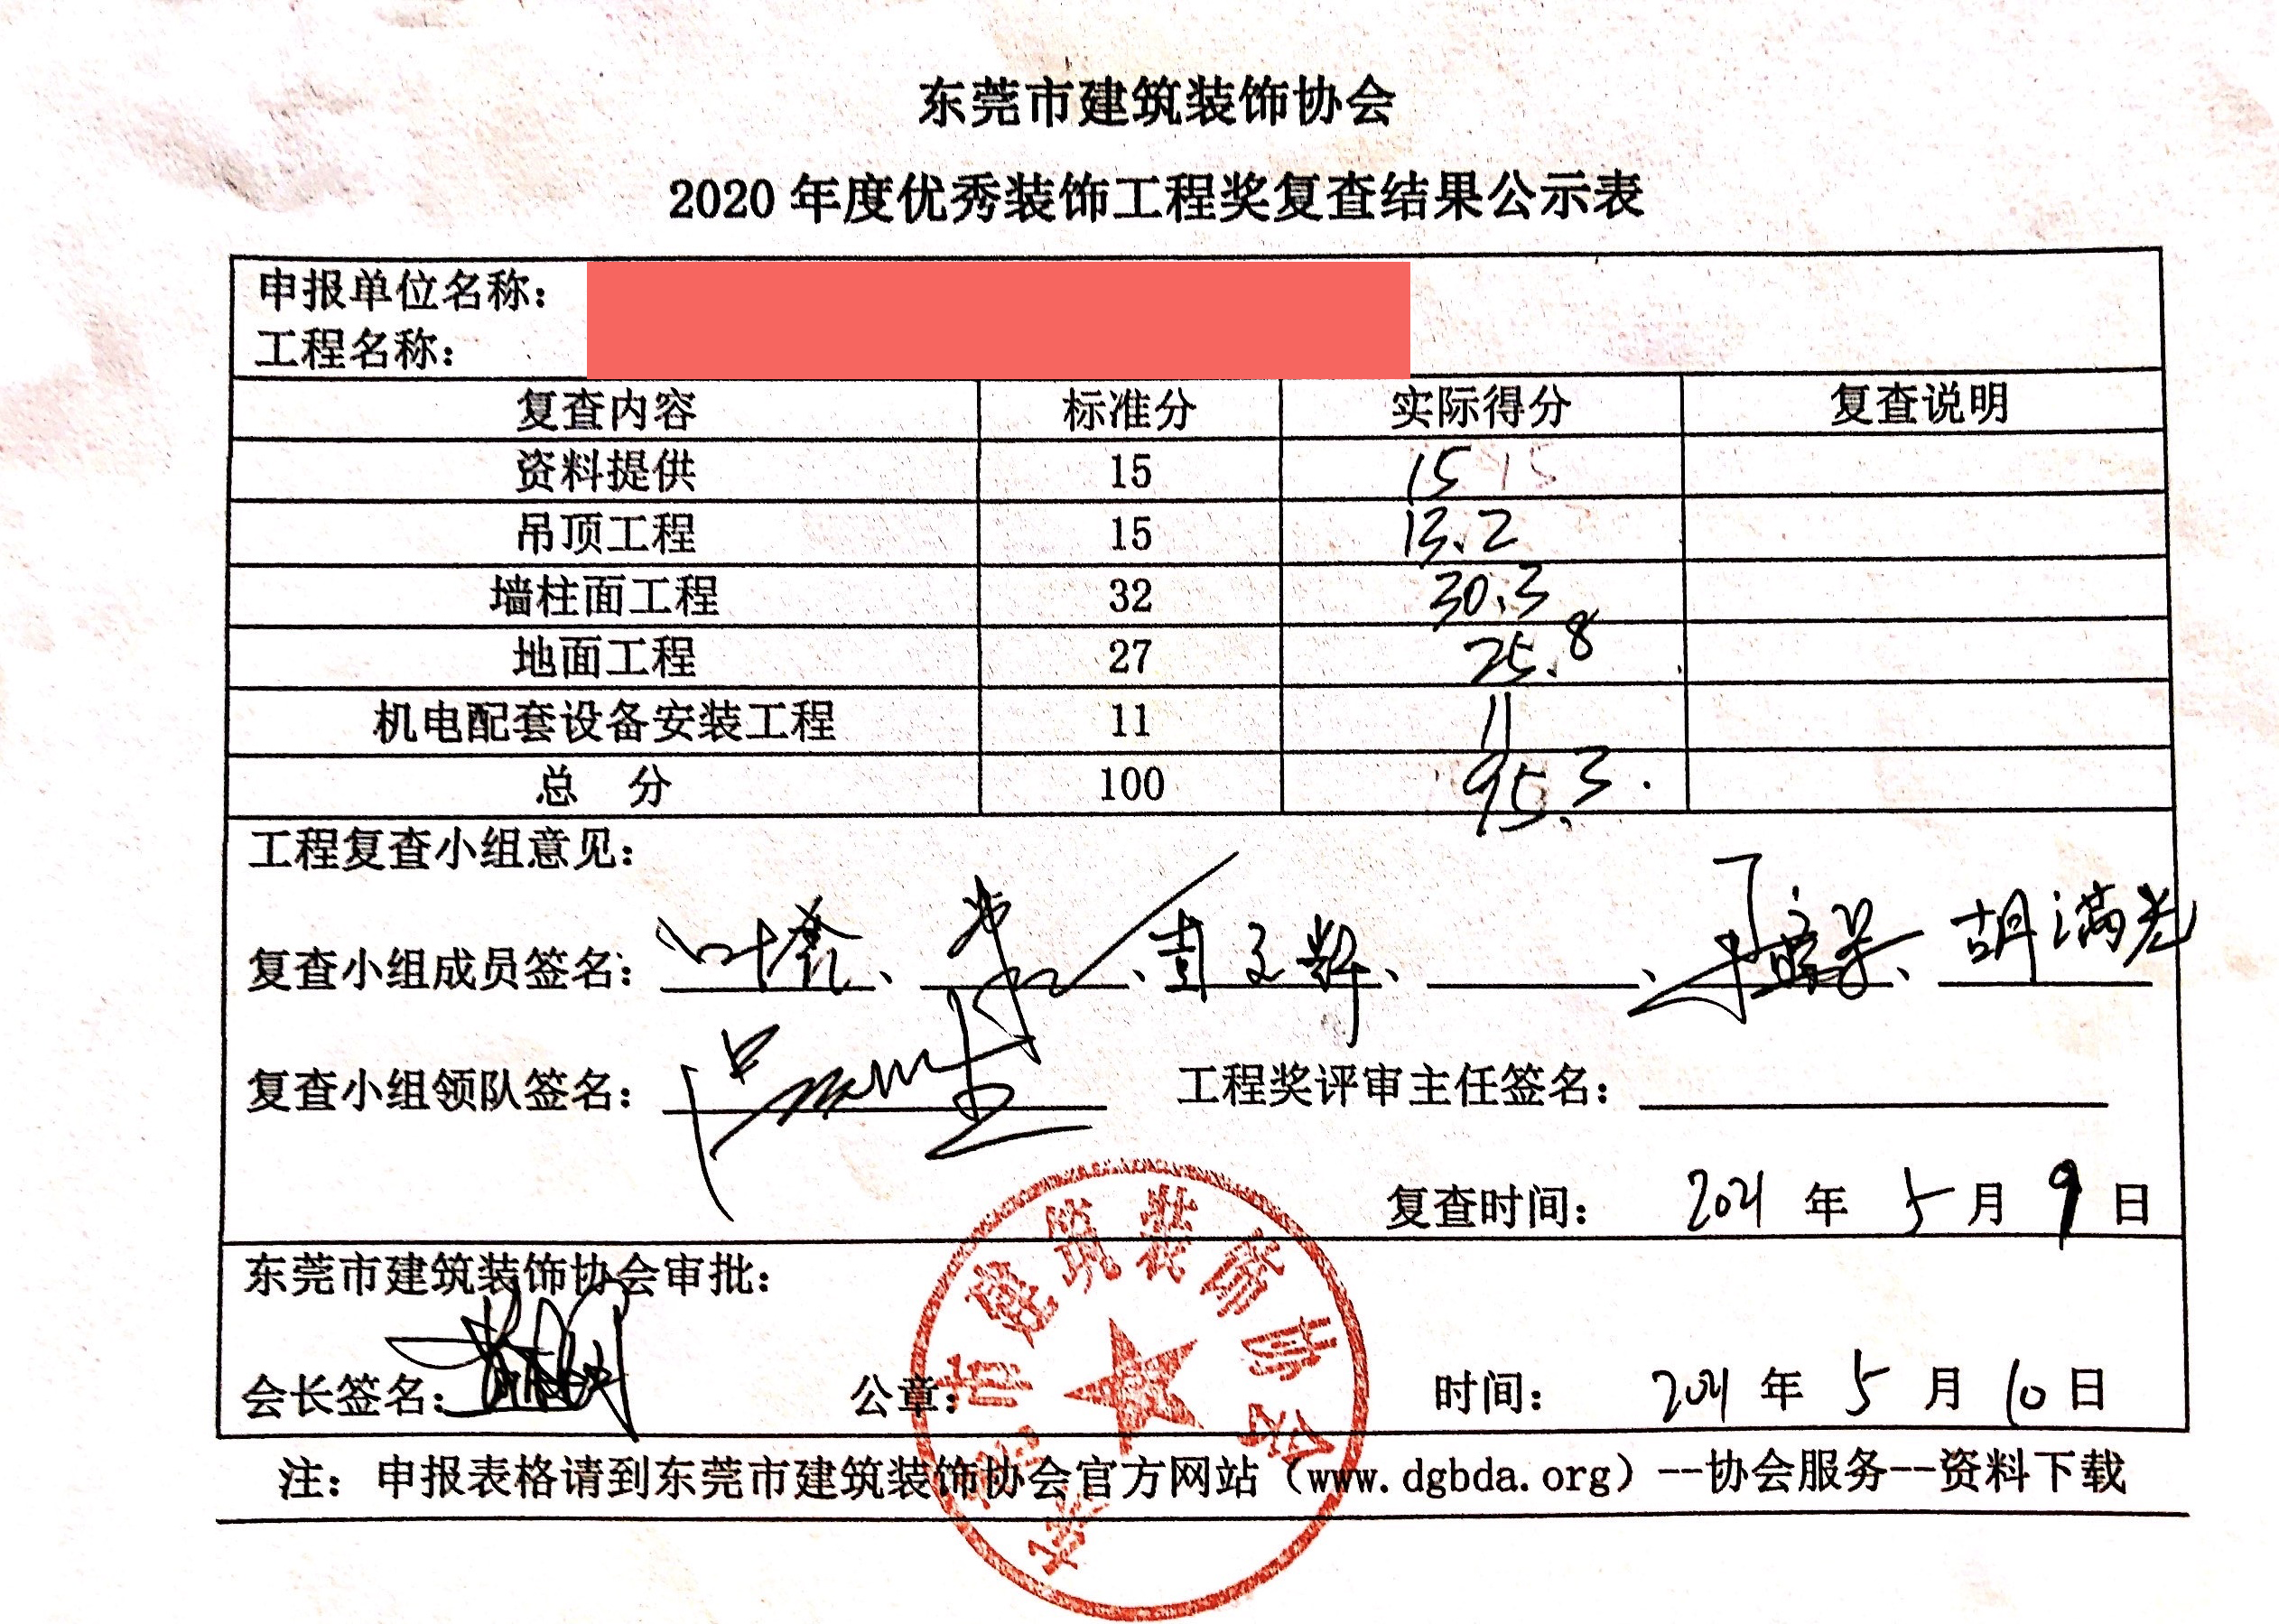 东莞市建筑装饰协会
2020 年度优秀装饰工程奖复查结果公示表
申报单位名称：
工程名称：
复查内容 标准分 实际得分 复查说明
资料提供 15 15 15
吊顶工程 15 13.2
墙柱面工程 32 30.3
地面工程 27 25.8
机电配套设备安装工程 11 11
总 分 100 95.3.
工程复查小组意见：
复查小组成员签名： 、 、 、 、 、胡满光
复查小组领队签名： 工程奖评审主任签名：
复查时间： 2021 年 5 月 9 日
东莞市建筑装饰协会审批：
会长签名： 公章： 时间： 2021 年 5 月 10 日
东莞市建筑装饰协会
注：申报表格请到东莞市建筑装饰协会官方网站（www.dgbda.org）--协会服务--资料下载